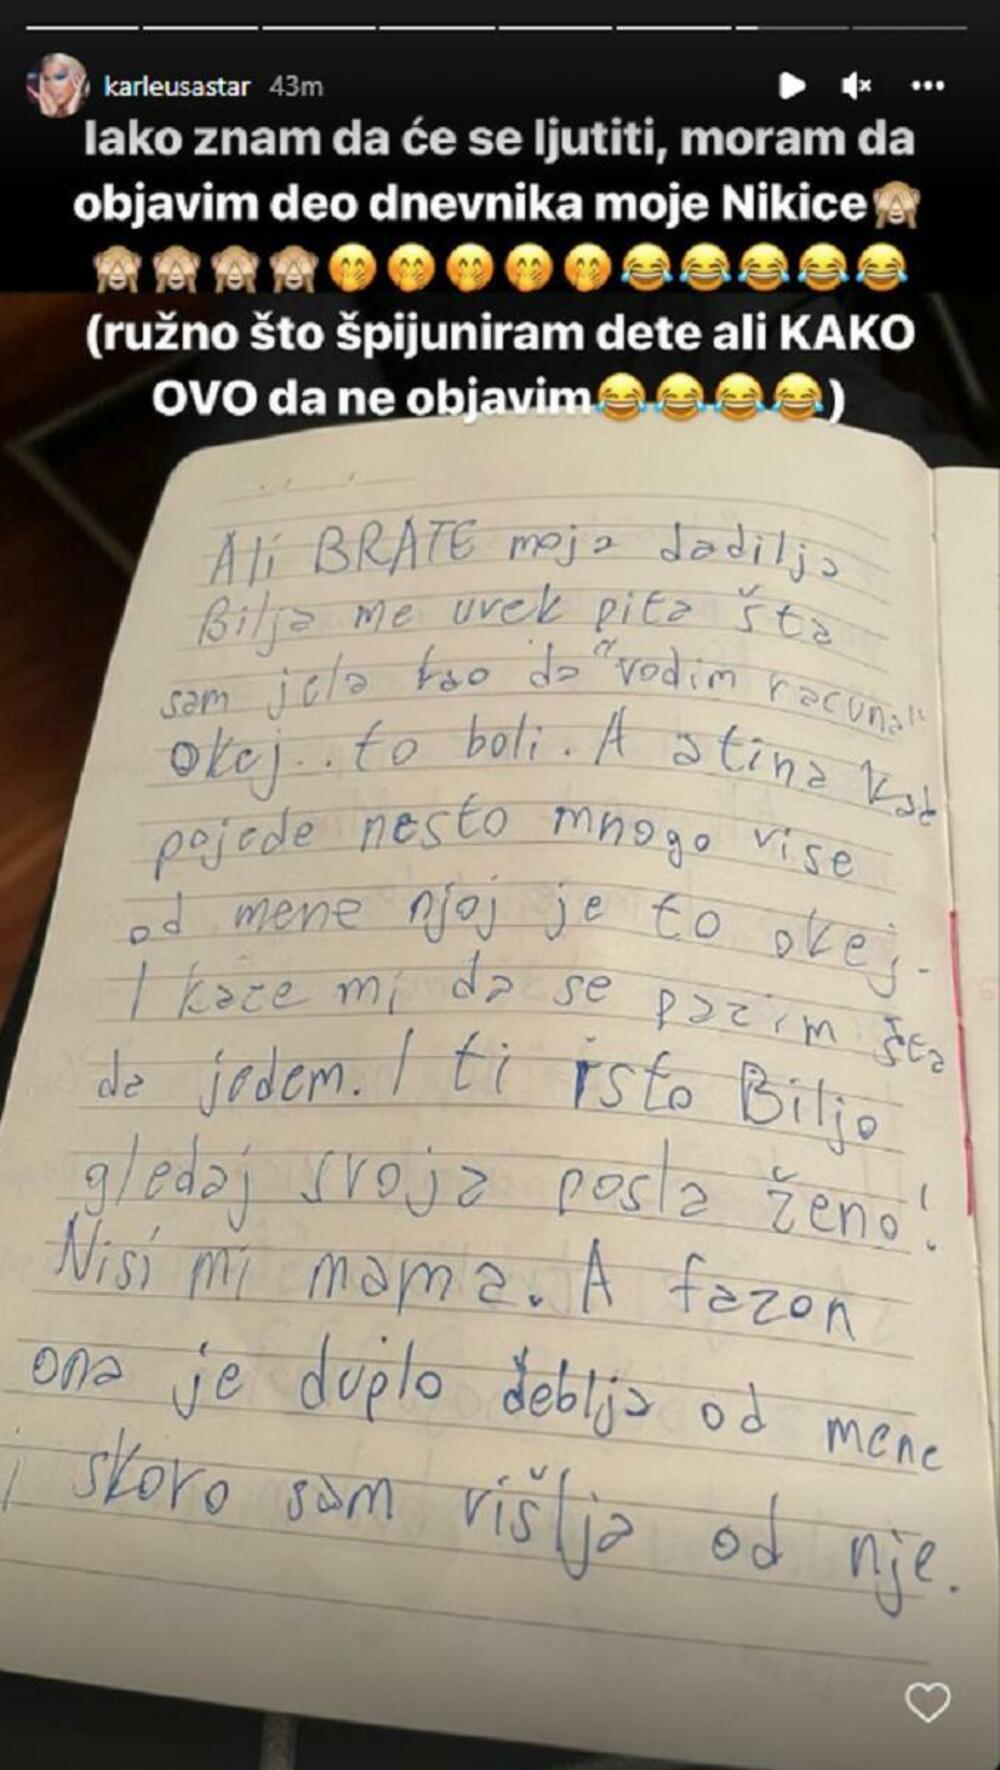 karleusastar 43m
Iako znam da će se ljutiti, moram da
objavim deo dnevnika moje Nikice🙈
🙈🙈🙈🙈🤭🤭🤭🤭🤭😂😂😂😂😂
(ružno što špijuniram dete ali KAKO
OVO da ne objavim😂😂😂😂)
Ali BRATE moja dadilja
Bilja me uvek pita šta
sam jela kao da "vodim racuna"
Okej.. to boli. A atina kad
pojede nesto mnogo vise
od mene njoj je to okej.
I kaze mi da se pazim šta
da jedem. I ti isto Biljo
gledaj svoja posla ženo!
Nisi mi mama. A fazon
ona je duplo deblja od mene
i skoro sam višlja od nje.